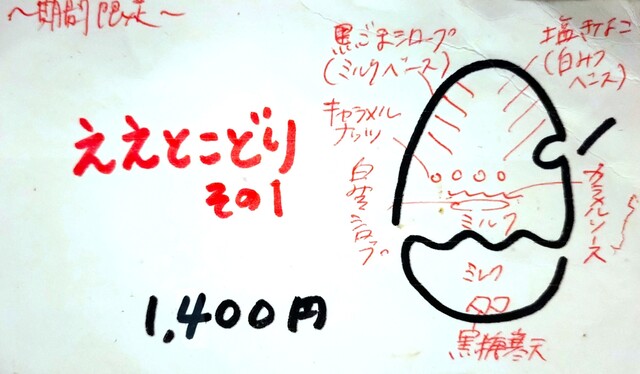 ～期間限定～
ええとこどり
その1
1,400円
黒ごまシロップ
(ミルクベース)
塩きなこ
(白みつ
ベース)
キャラメル
ナッツ
シロップ
カラメルソース
ミルク
ミルク
黒梅寒天